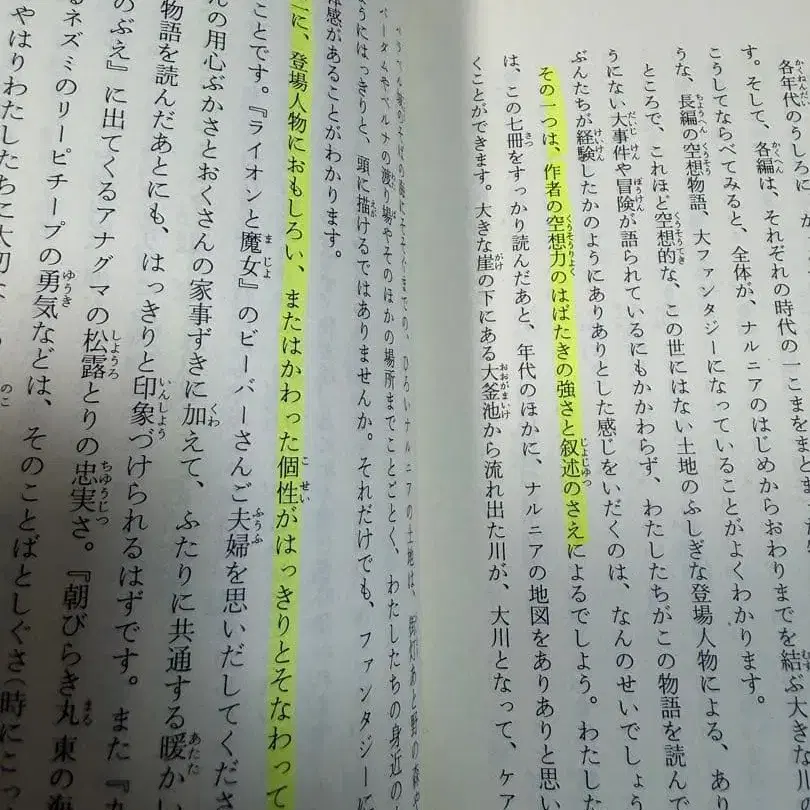 各年代のうしろに
す。そして、各編は、それぞれの時代の一こまをまとま
こうしてならべてみると、全体が、ナルニアのはじめからおわりまでを結ぶ大きな川
うな、長編の空想物語、大ファンタジーになっていることがよくわかります。
ところで、これほど空想的な、この世にはない土地のふしぎな登場人物による、あり
うにない大事件や冒険が語られているにもかかわらず、わたしたちがこの物語を読んで
ぶんたちが経験したかのようにありありとした感じをいだくのは、なんのせいでしょう
その一つは、作者の空想力のはばたきの強さと叙述のさえによるでしょう。わたした
は、この七冊をすっかり読んだあと、年代のほかに、ナルニアの地図をありありと思い
くことができます。大きな崖の下にある大釜池から流れ出た川が、大川となって、ケア
ひろいナルニアの土地は、街灯あと野の森や
ベルナの渡り場やそのほかの場所までことごとく、わたしたちの身近の
ようにはっきりと、頭に描けるではありませんか。それだけでも、ファンタジーに
体感があることがわかります。
に、登場人物におもしろい、またはかわった個性がはっきりとそなわって
ことです。『ライオンと魔女』のビーバーさんご夫婦を思いだしてくださ
んの用心ぶかさとおくさんの家事ずきに加えて、ふたりに共通する暖かい
物語を読んだあとにも、はっきりと印象づけられるはずです。また『
のぶえ』に出てくるアナグマの松露とりの忠実さ。『朝びらき丸 東の海
るネズミのリーピチープの勇気などは、そのことばとしぐさ（時にこっ
やはりわたしたちに大切な